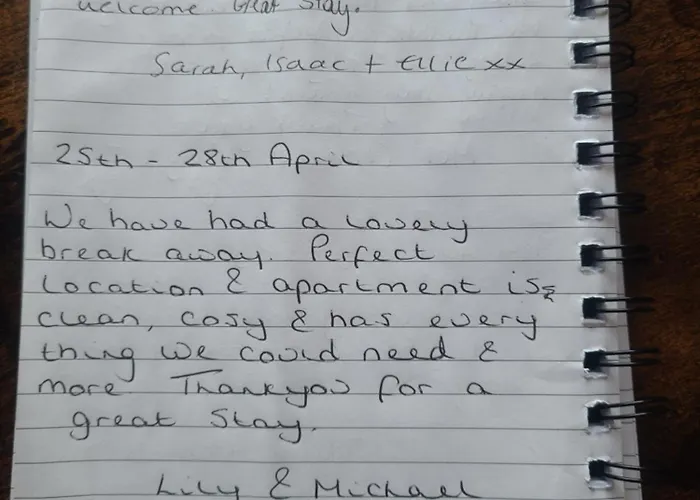 welcome. Great Stay.
Sarah, Isaac + Ellie xx
25th - 28th April
We have had a lovely
break away. Perfect
location & apartment is
clean, cosy & has every
thing we could need &
more Thankyou for a
great Stay.
Lily & Michael